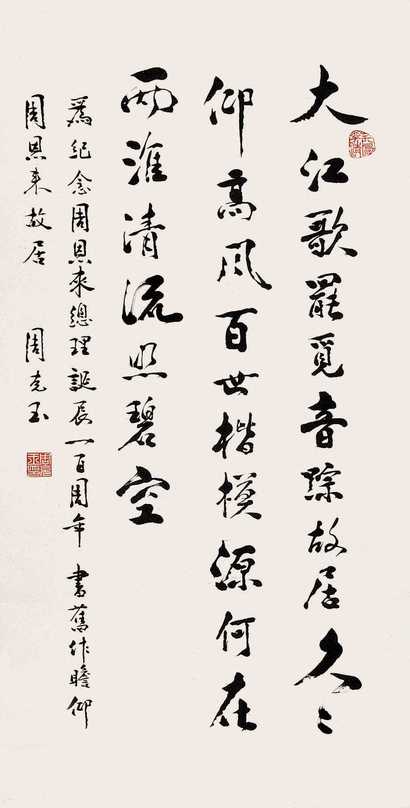 大江歌罷覓音踪故居久久
仰高风百世楷模源何在
两淮清流照碧空
爲紀念周恩來總理誕辰一百周年 書舊作瞻仰
周恩来故居 周克玉